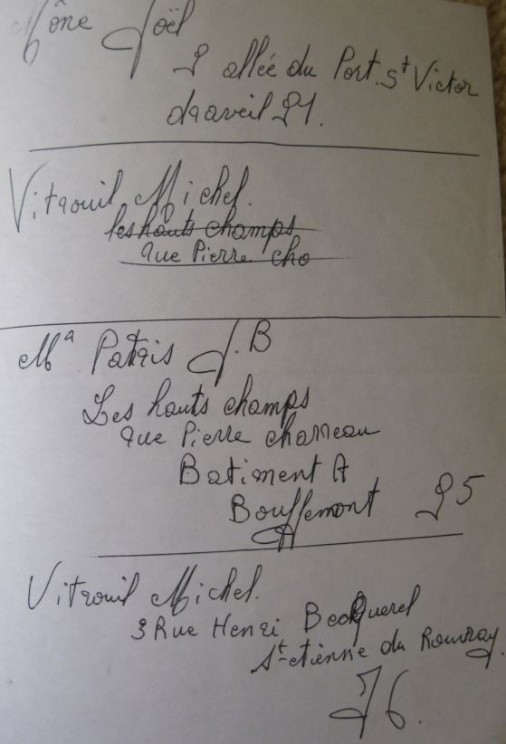 Mône Joël
9 allée du Port St Victor
draveil 91.
Vitrouil Michel.
les hauts champs
rue Pierre cho
Mr Patris J.B
Les hauts champs
rue Pierre charreau
Batiment A
Bouffemont 95
Vitrouil Michel.
3 Rue Henri Becquerel
St-etienne du Rouvray.
76.